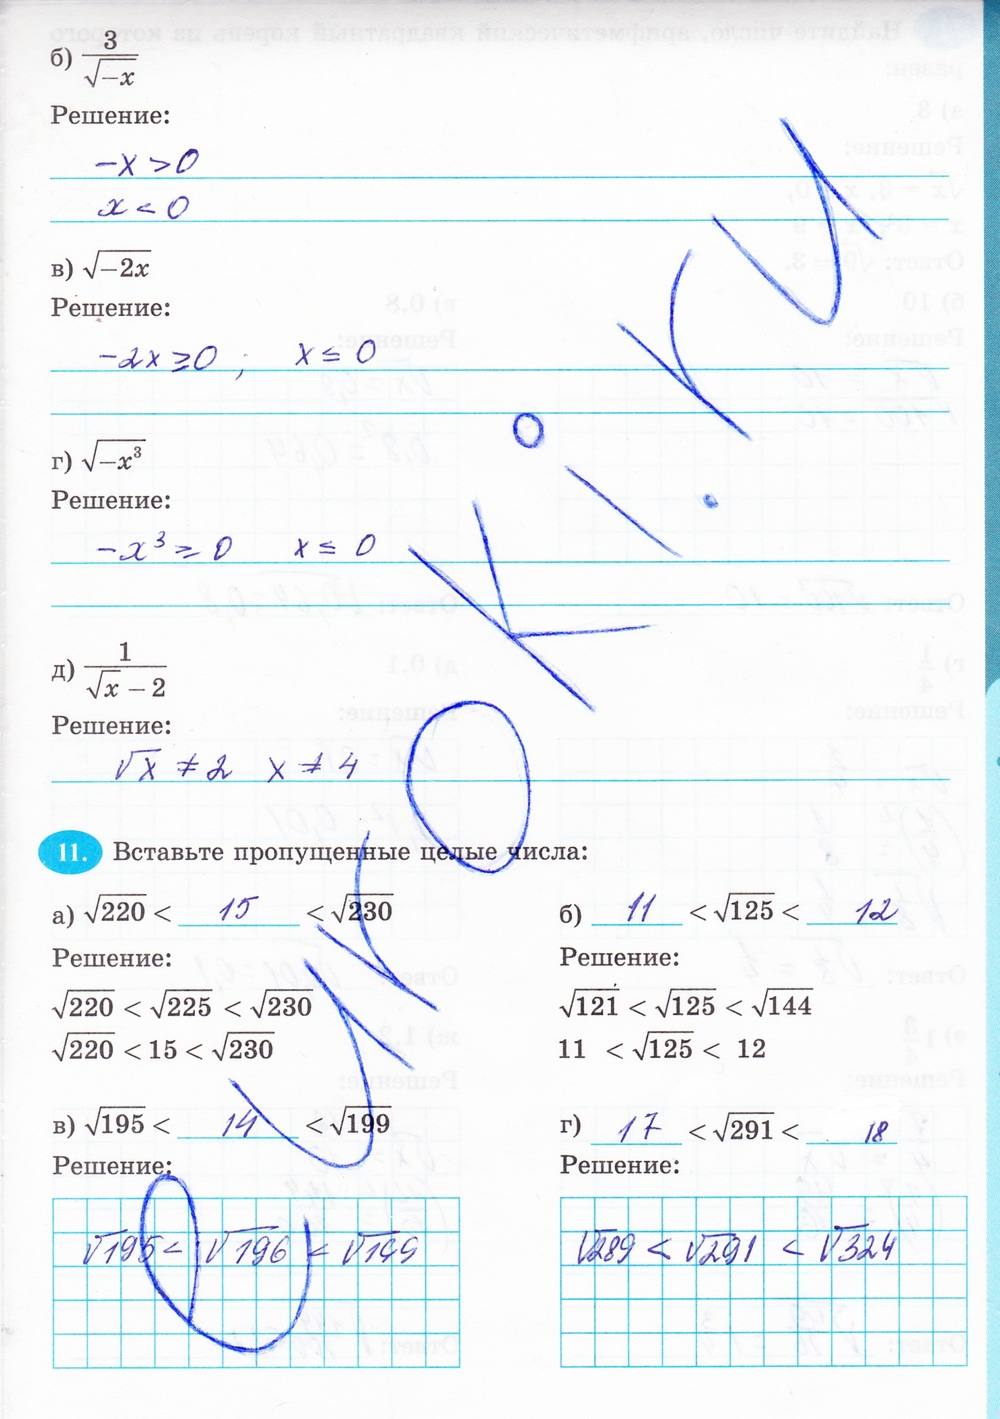 б) 3/√−x
Решение:
−x > 0
x < 0
в) √−2x
Решение:
−2x ≥ 0 ; x ≤ 0
г) √−x³
Решение:
−x³ ≥ 0 x ≤ 0
д) 1/(√x − 2)
Решение:
√x ≠ 2 x ≠ 4
11. Вставьте пропущенные целые числа:
а) √220 < 15 < √230
Решение:
√220 < √225 < √230
√220 < 15 < √230
б) 11 < √125 < 12
Решение:
√121 < √125 < √144
11 < √125 < 12
в) √195 < 14 < √199
Решение:
√195 < √196 < √199
г) 17 < √291 < 18
Решение:
√289 < √291 < √324
yroki.ru